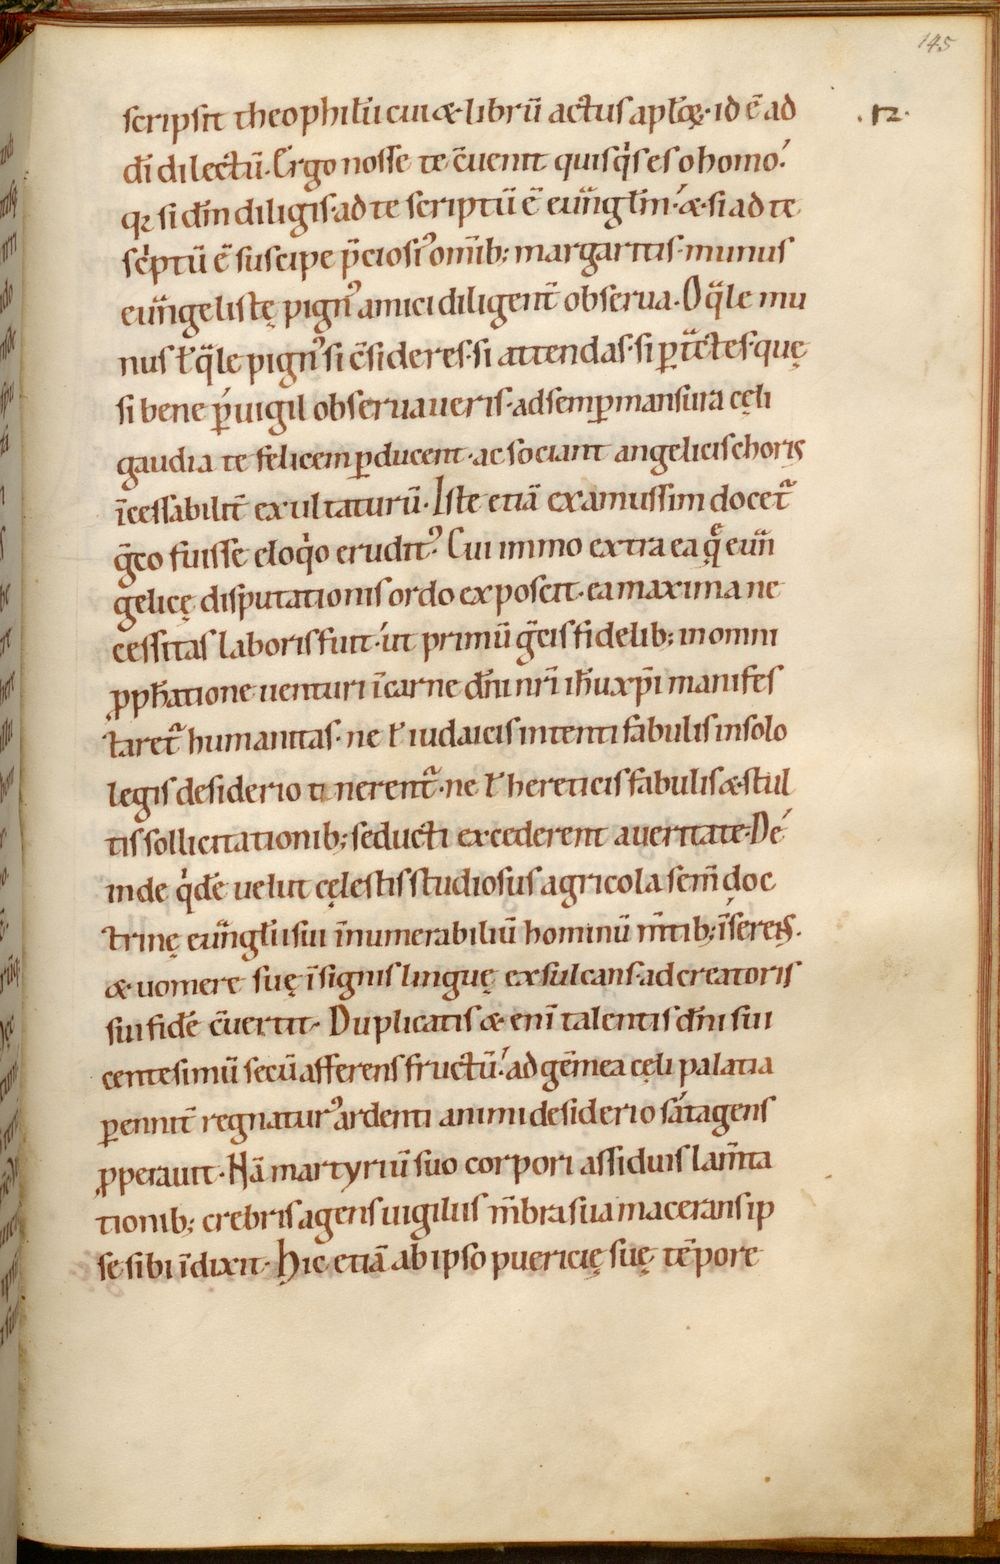 145
scripsit theophilū cui & librū actus aplo℞· id ē ad .12.
dm̄ dilectū. Ergo nosse te c̄uenit quisqͥs es o homo!
qꝛ si dm̄ diligis· ad te scriptū ē euu̅gl̅m· & si ad te
scͥptū ē suscipe p̄ciosiꝰ om̄ib; margaritis· munus
euu̅gelistę pignꝰ amici diligent̄ obserua. O qͣle mu
nus ł qͣle pignꝰ si c̄sideres· si attendas· si ꝑtͣctes· quę
si bene ꝑuigil obseruaueris· ad semꝑ mansura cęli
gaudia te felicem ꝑducent· ac sociant angelicis choris
īcessabilit̄ exultaturū. Iste etiā examussim docet᷑
g̅co fuisse eloqͥo eruditꝰ. Cui immo extra ea q̄ euu̅
gelicę disputationis ordo exposcit· ea maxima ne
cessitas laboris fuit· ut primū g̅cis fidelib; in omni
ꝓph̅atione uenturi ī carne dn̅i nr̅i ih̅u xp̅i manifes
taret᷑ humanitas· ne ł iudaicis intenti fabulis in solo
legis desiderio tinerent᷑· ne ł hereticis fabulis & stul
tis sollicitationib; seducti excederent a ueritate. De
inde qͥdē uelut cęlestis studiosus agricola sem̄ doc
trinę euu̅gl̅ii sui īnumerabiliū hominū m̄tib; īsereis.
& uomere suę īsignis linguę exsulcans· ad creatoris
sui fidē c̄uertit. Duplicatis & eni̅ talentis dn̅i sui
centesimū secū afferens fructū! ad gēmea cęli palatia
ꝑennit̄ regnaturꝰ ardenti animi desiderio satagens
ꝓperauit. Nā martyriū suo corpori assiduis lam̄ta
tionib; crebris agens uigiliis m̄bra sua macerans ip
se sibi īdixit. Hic etiā ab ipso puericię suę tēpore